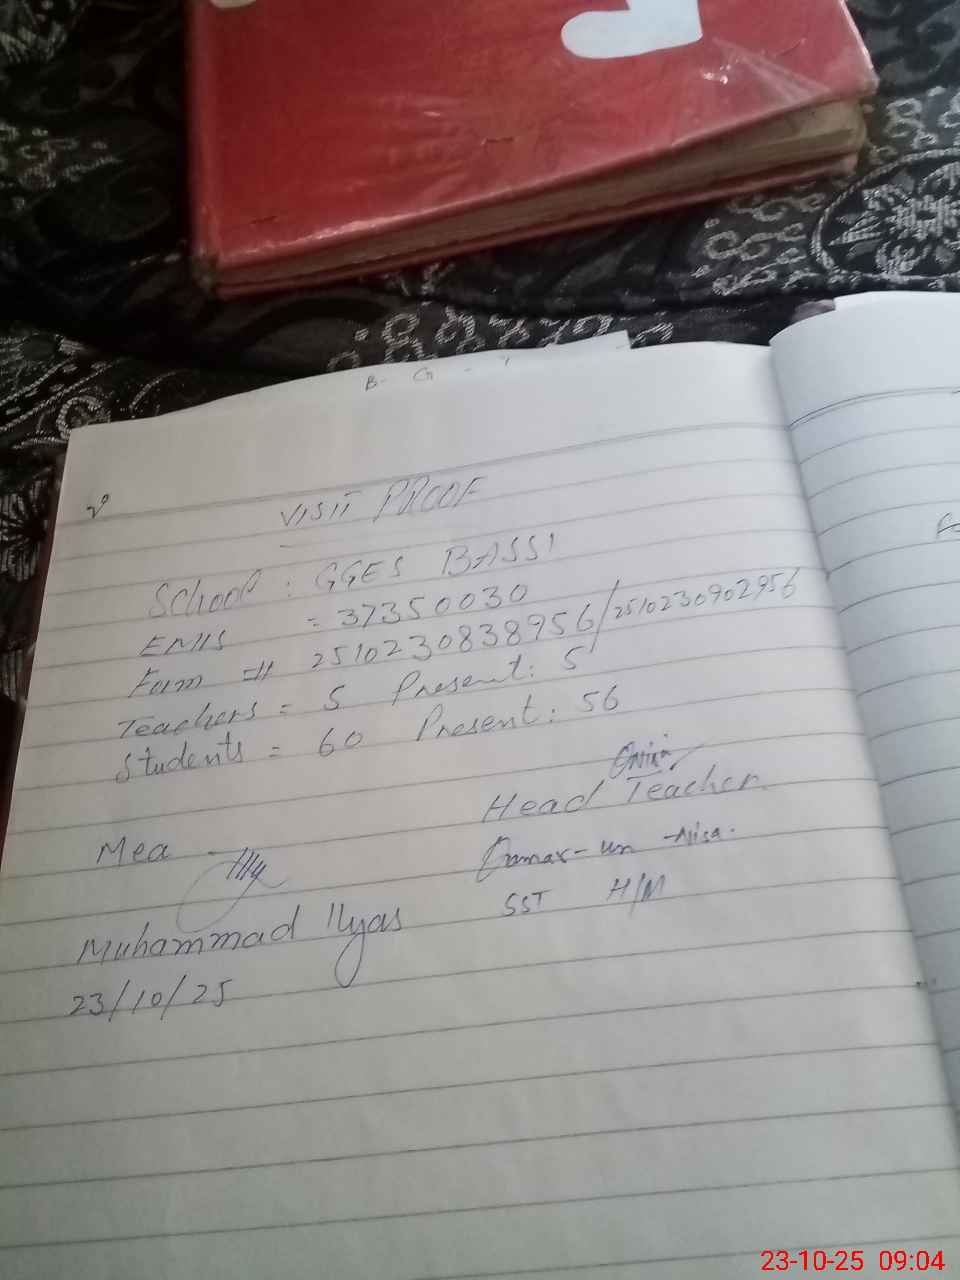 B- G -
VISIT PROOF
School : GGES BASSI
EMIS = 37350030
Form # 2510230838956/2510230902956
Teachers = 5 Present: 5
Students = 60 Present: 56
Head Teacher
Mea
Qamar-un-Nisa.
SST H/M
Muhammad Ilyas
23/10/25
23-10-25 09:04